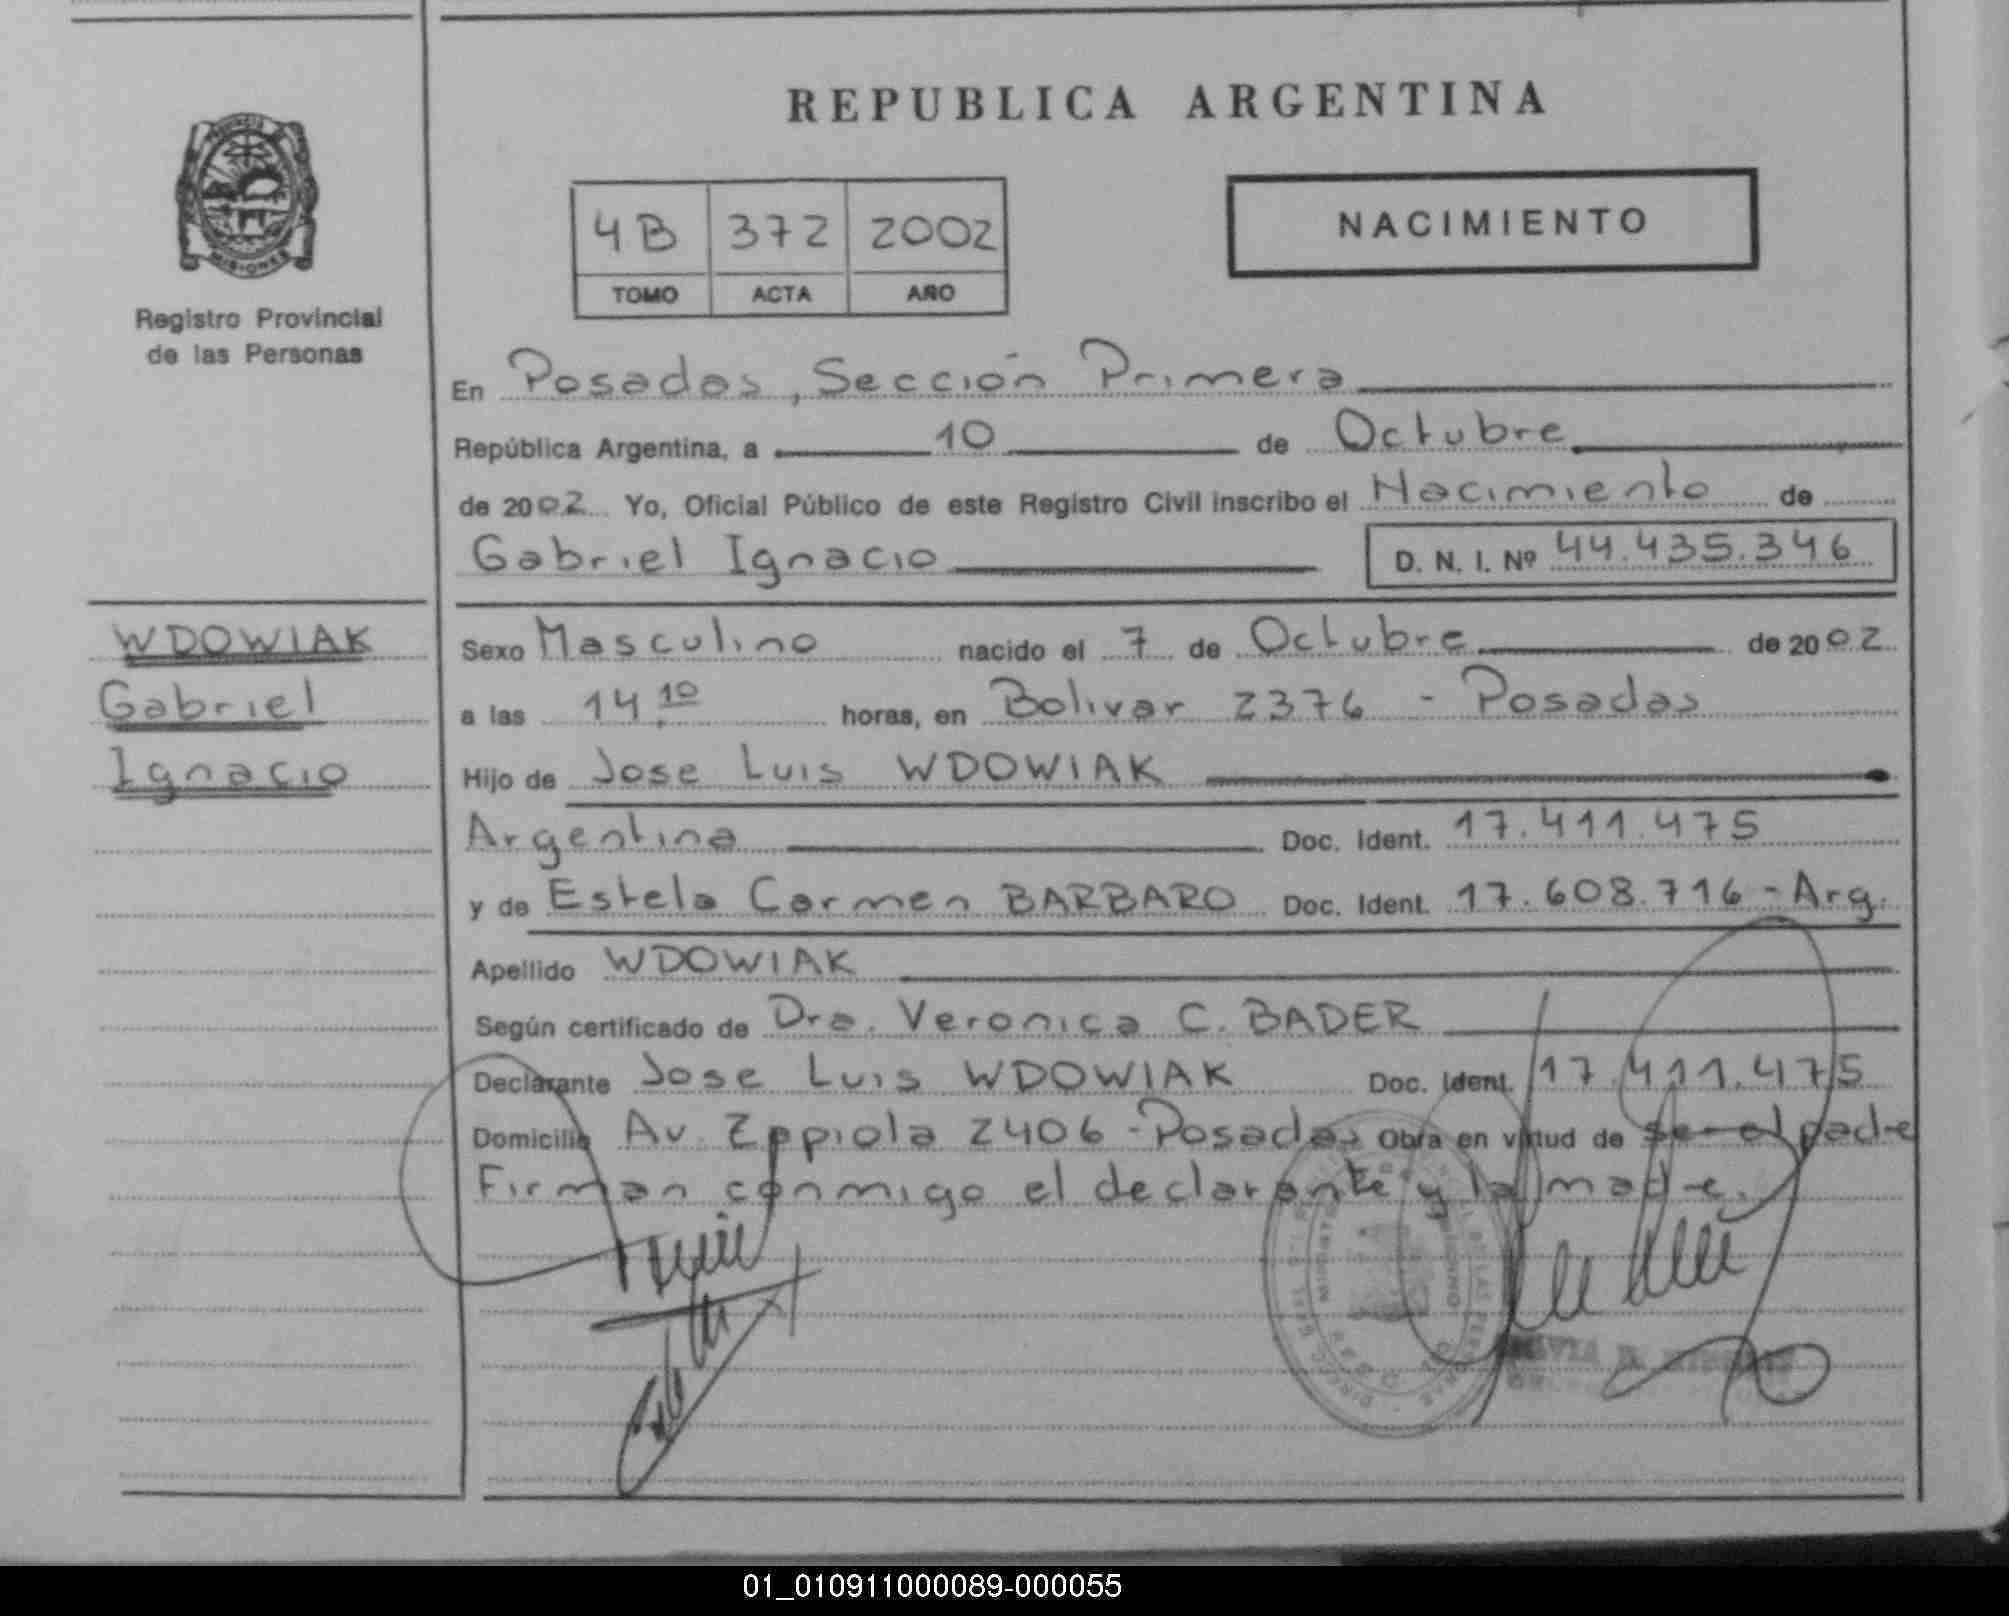 REPUBLICA ARGENTINA
PROVINCIA DE
MISIONES
Registro Provincial
de las Personas
4B 372 2002
TOMO ACTA AÑO
NACIMIENTO
En Posadas, Sección Primera
República Argentina, a 10 de Octubre
de 2002 Yo, Oficial Público de este Registro Civil inscribo el Nacimiento de
Gabriel Ignacio D. N. I. Nº 44.435.346
WDOWIAK
Gabriel
Ignacio
Sexo Masculino nacido el 7 de Octubre de 2002
a las 14.10 horas, en Bolivar 2376 - Posadas
Hijo de Jose Luis WDOWIAK
Argentina Doc. Ident. 17.411.475
y de Estela Carmen BARBARO Doc. Ident. 17.608.716 - Arg.
Apellido WDOWIAK
Según certificado de Dra. Veronica C. BADER
Declarante Jose Luis WDOWIAK Doc. Ident. 17.411.475
Domicilio Av. Zppiola 2406 - Posadas Obra en virtud de ser el padre
Firman conmigo el declarante y la madre.
01_010911000089-000055